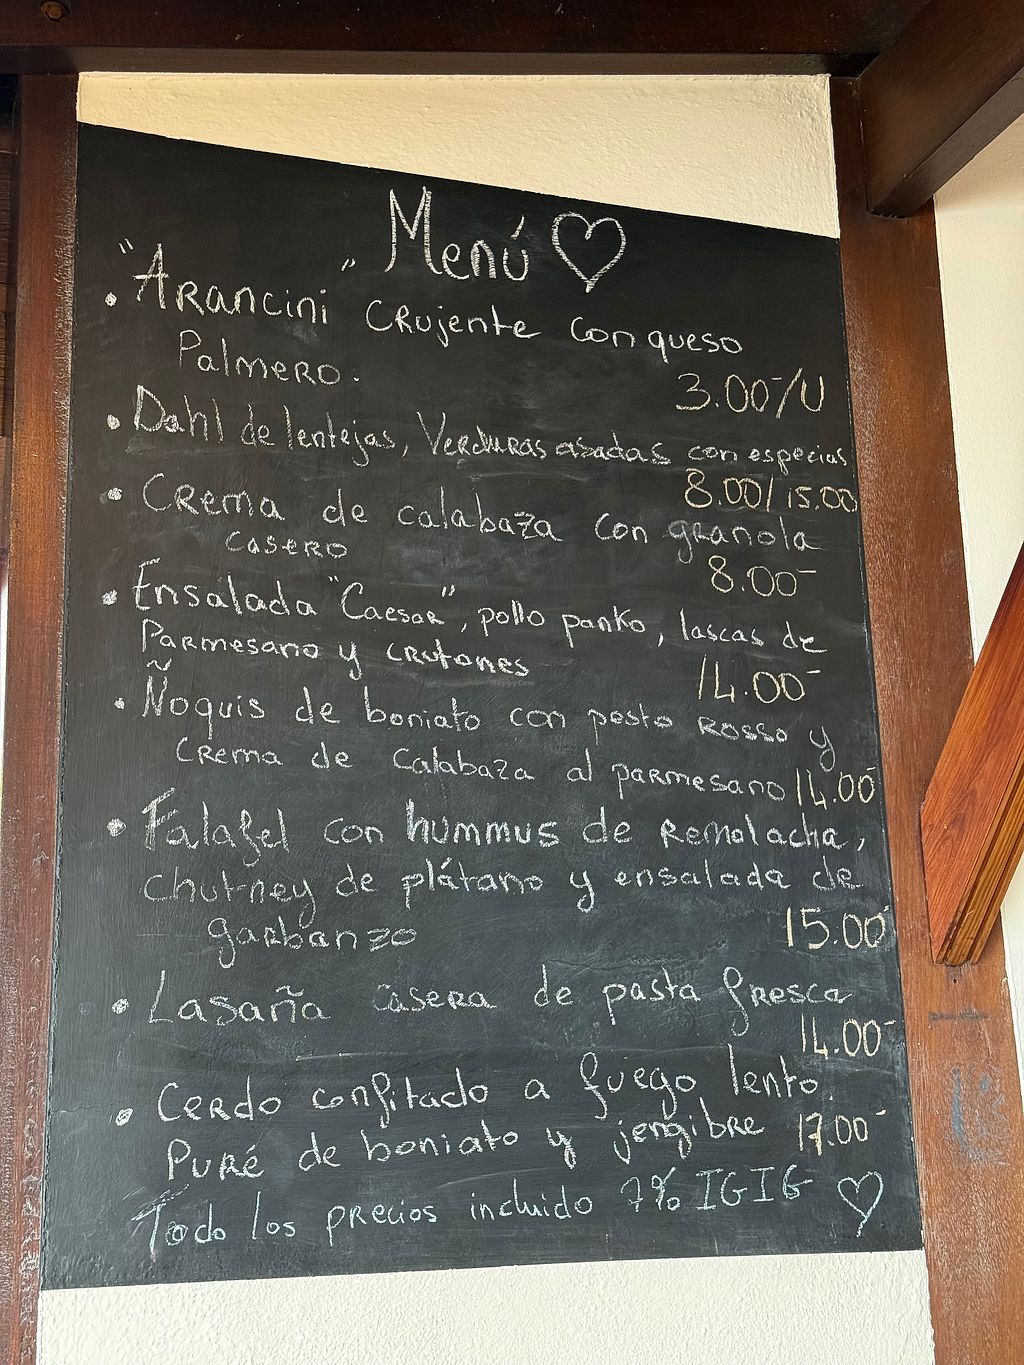 Menú ♡
• "Arancini" crujente con queso
Palmero.
3.00-/U
• Dahl de lentejas, Verduras asadas con especias
8.00/15.00
• Crema de calabaza con granola
casero
8.00-
• Ensalada "Caesar", pollo panko, lascas de
Parmesano y crutones
14.00-
• Ñoquis de boniato con pesto rosso y
crema de calabaza al parmesano 14.00-
• Falafel con hummus de remolacha,
chutney de plátano y ensalada de
garbanzo
15.00-
• Lasaña casera de pasta fresca
14.00-
• Cerdo confitado a fuego lento.
Puré de boniato y jengibre 17.00-
Todo los precios incluido 7% IGIG ♡